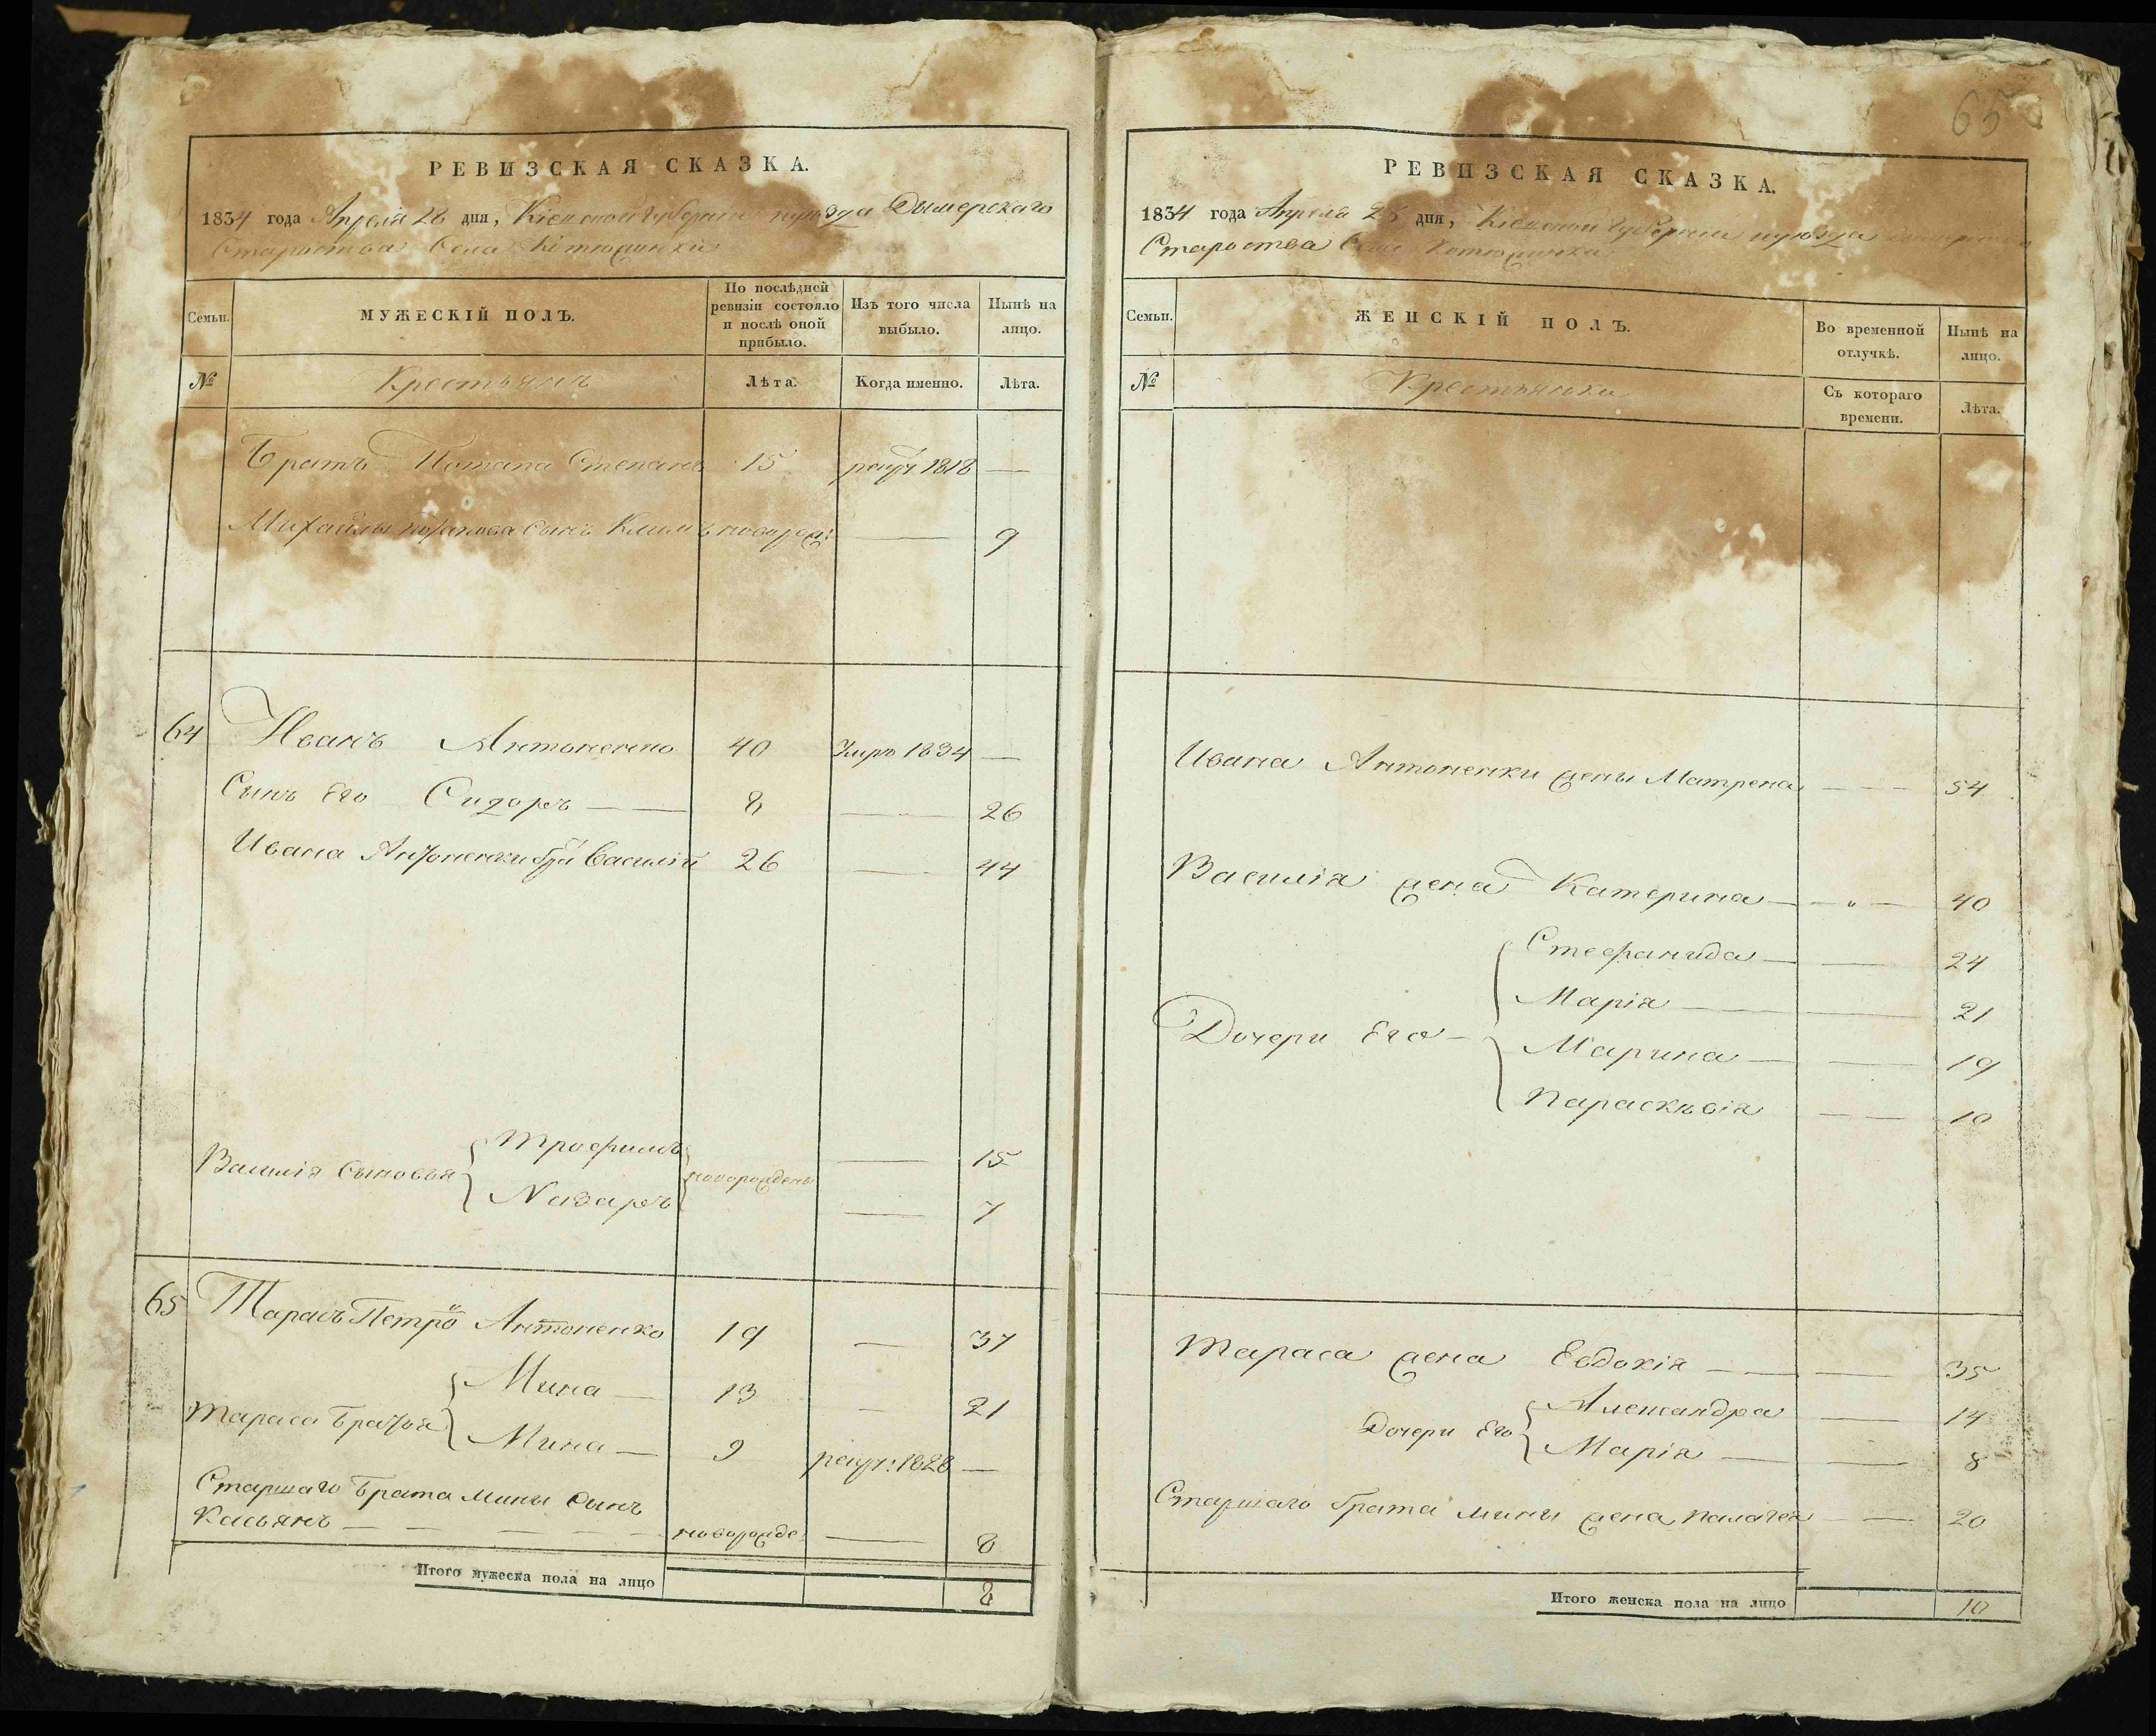 РЕВИЗСКАЯ СКАЗКА.
1834 года Апреля 26 дня, Кіевской губерніи и уѣзда Дымерскаго
Староства Села
Семьи.
МУЖЕСКІЙ ПОЛЪ.
По послѣдней
ревизіи состояло
и послѣ оной
прибыло.
Изъ того числа
выбыло.
Нынѣ на
лицо.
№
Крестьянъ
Лѣта.
Когда именно.
Лѣта.
Братъ Потапа Степанъ 15 рекру: 1818 —
Михайлы сынъ Климъ новорож: — 9
64 Иванъ Антоненко 40 умре 1834 —
Сынъ Его Сидоръ — 8 — 26
Ивана Антоненки бра Василій 26 — 44
Василія сыновья { Трофимъ } новорождены — 15
Назаръ — 7
65 Тарасъ Петро Антоненко 19 — 37
Тараса Братья { Мина — 13 — 21
Мина — 9 рекру: 1828 —
Старшаго Брата Мины Сынъ
Касьянъ — — — — — новорожде. — 8
Итого мужеска пола на лицо 8
65
РЕВИЗСКАЯ СКАЗКА.
1834 года Апреля 26 дня, Кіевской губерніи и уѣзда
Староства Села
Семьи.
ЖЕНСКІЙ ПОЛЪ.
Во временной
отлучкѣ.
Нынѣ на
лицо.
№
Крестьянки
Съ котораго
времени.
Лѣта.
Ивана Антоненки жены Матрена — — — 54
Василія жена Катерина — — " — 40
Дочери Его — { Стефанида — — 24
Марія — — 21
Марина — — 19
Параскѣвія — — 10
Тараса жена Евдокія — — 35
Дочери Его { Александра — 14
Марія — — 8
Старшаго брата мины жена палагея — — 20
Итого женска пола на лицо 10